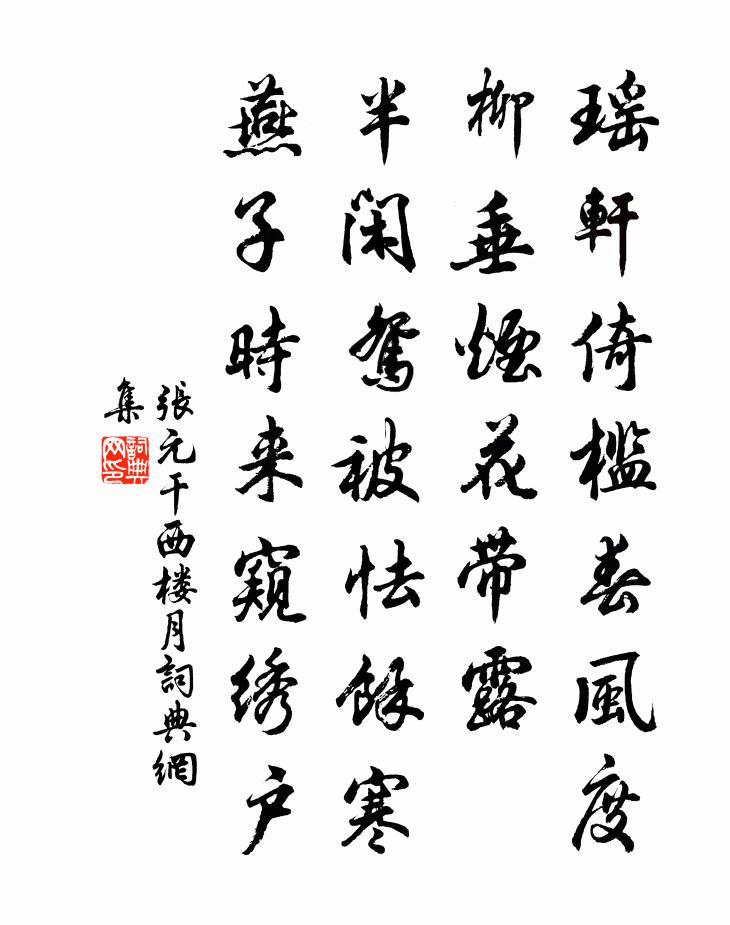 瑶軒倚檻春風度
柳垂煙花帶露
半閑鴛被怯餘寒
燕子時来窺綉户
張元干西楼月詞典網
集
詞典网印